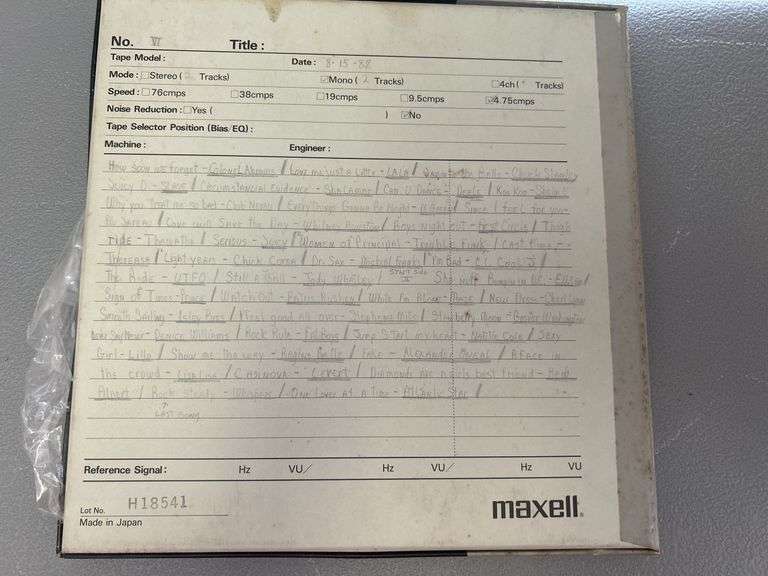 No. VI Title :
Tape Model: Date: 8-15-88
Mode: Stereo ( Tracks) Mono ( 2 Tracks) 4ch ( Tracks)
Speed: 76cmps 38cmps 19cmps 9.5cmps 4.75cmps
Noise Reduction: Yes ( ) No
Tape Selector Position (Bias/EQ) :
Machine : Engineer :
How soon we forget - Colonel Abrams / Love me Just a little - LALA / the Belle - Chuck Stanley
Juicy O - Slave / Circumstantial Evidence - Shalamar / Can U Dance - / Koo Koo - Sheila E
Why you treat me so bad - Club Nouveau / Every Drop Gonna Be Alright - Al Green / Since I fell for you -
/ Love will Save the Day - Whitney Houston / Boys night out - / Tough
TIDE - / Serious - / Women of Principal - Trouble Funk / Last time -
/ Light years - Chick Corea / Dr. Sax - / I'm Bad - L.L. Cool J /
The Radio - UTFO / Still a thrill - Jody Watley / START SIDE / She
Sign of Times - Prince / Watch Out - Patrice Rushen / While I'm Alone - Maze / New Dress -
Smooth Sailing - Isley Bros / feel good all over - Stephanie Mills / Strawberry Moon - Grover Washington
- Denice Williams / Rock Rule - Fat Boys / Jump START my heart - Natilie Cole / Sexy
Girl - Lillo / Show me the way - Regina Belle / Fake - Alexander Oneal / A Face in
the crowd - / CASINOVA - Levert / Diamonds are a girls best friend - Herb
Alpert / Rock Steady - Whispers / One Lover At A Time - Atlantic Star /
LAST Song
Reference Signal : Hz VU/ Hz VU/ Hz VU
Lot No. H18541
maxell
Made in Japan